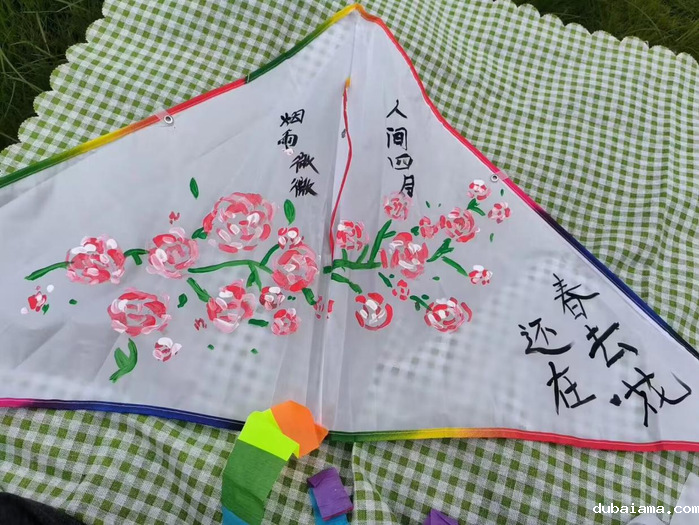 人间四月
烟雨
微微
春去花
还在
dubaiama.com